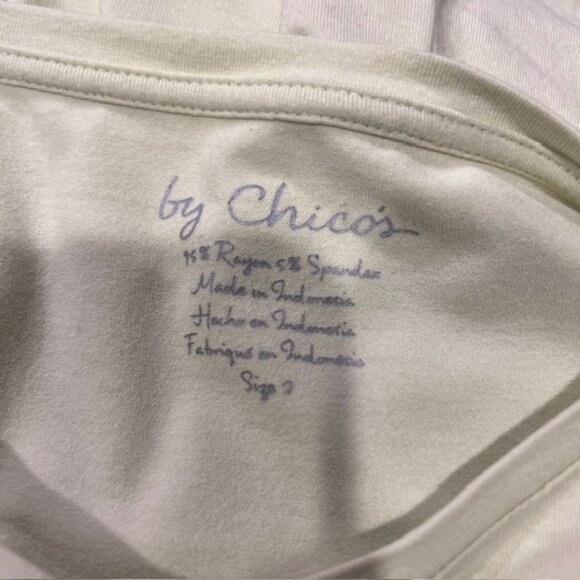 by Chico's
95% Rayon 5% Spandex
Made in Indonesia
Hecho en Indonesia
Fabriqué en Indonesia
Size 2